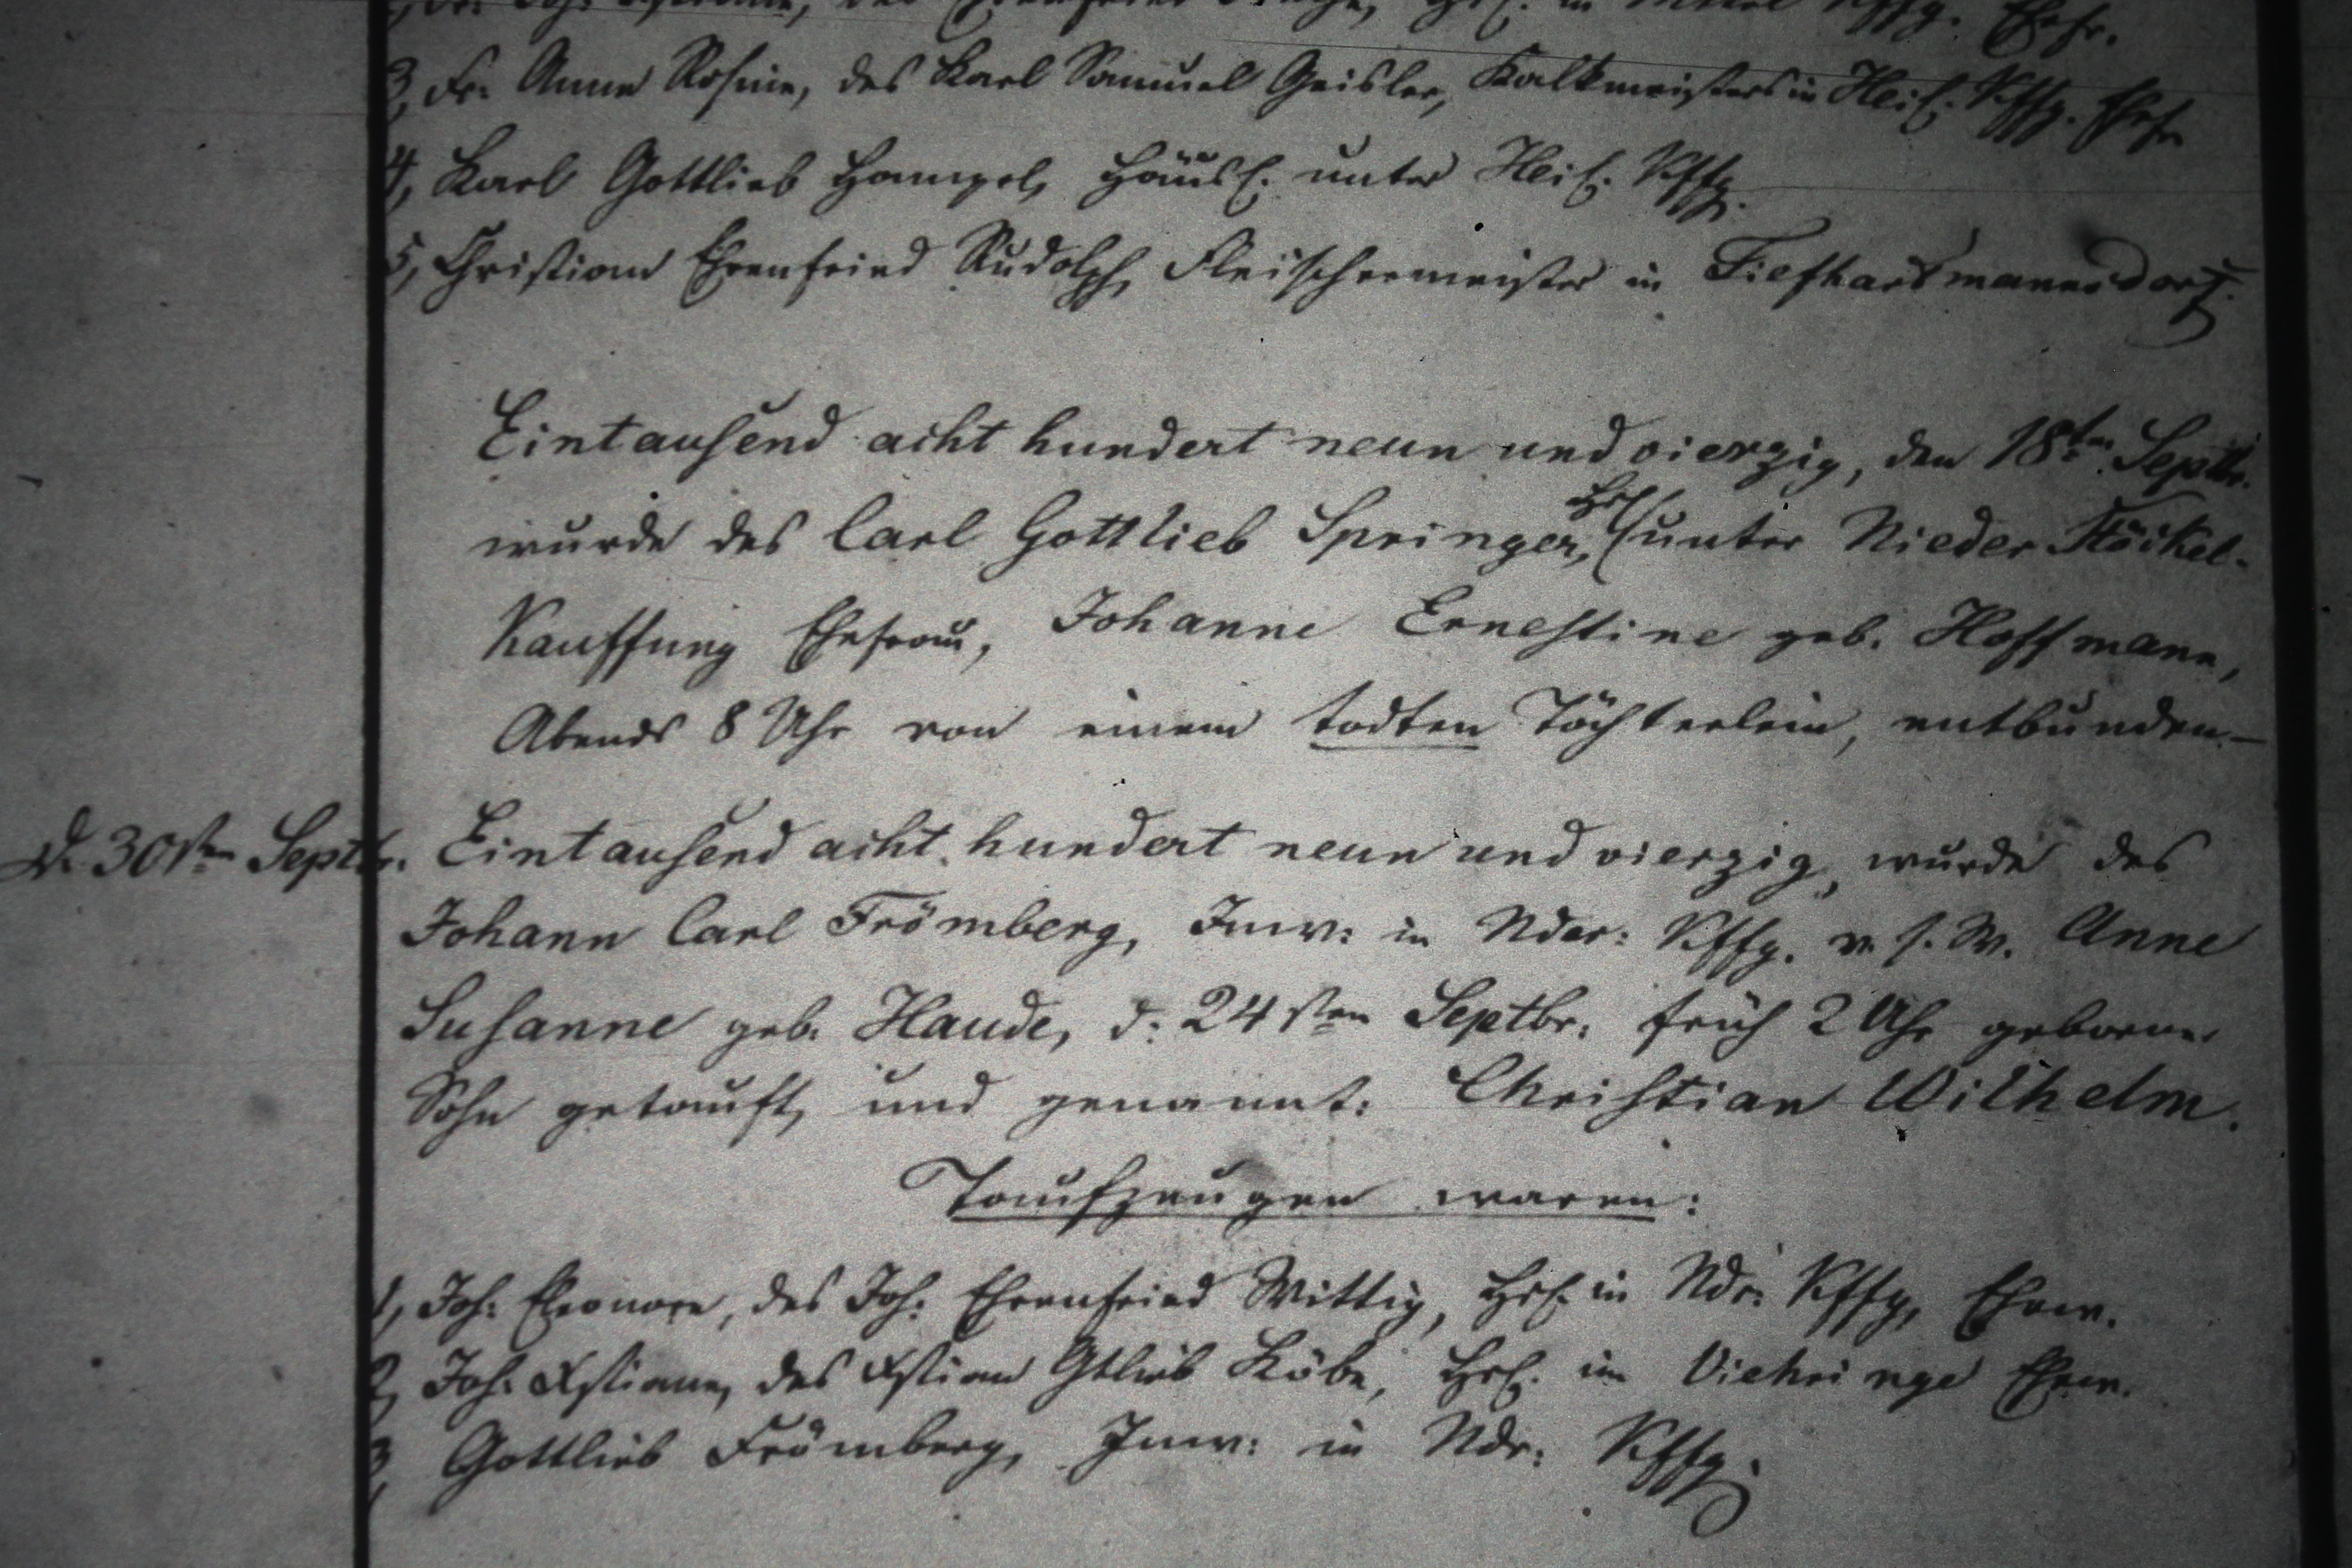 3, Fr: Anna Rosine, des Karl Samuel Geisler, Kalkmeisters in Heil. Kffg. Ehefr
4, Karl Gottlieb Hampel, Häusl. unter Heil. Kffg.
5, Christian Ehrenfried Rudolph, Fleischermeister in Tiefhartmannsdorf.
Eintausend acht hundert neun und vierzig, den 18ten Septbr.
wurde des Carl Gottlieb Springer, Hsl. unter Nieder Stöckel-
Kauffung Ehefrau, Johanne Ernestine geb. Hoffmann,
Abends 8 Uhr von einem todten Töchterlein, entbunden.–
d. 30sten Septbr. Eintausend acht hundert neun und vierzig, wurde des
Johann Carl Frömberg, Inw: in Nder: Kffg. v. s. W. Anne
Susanne geb. Haude, d: 24sten Septbr: früh 2 Uhr geborner
Sohn getauft, und genannt: Christian Wilhelm.
Taufzeugen waren:
1, Joh: Eleonore, des Joh: Ehrenfried Wittig, Hsl. in Ndr: Kffg, Ehew.
2, Joh: Xstiane, des Xstian Gtlieb Köbe, Hsl. im Viehringe Ehew.
3, Gottlieb Frömberg, Inw: in Ndr: Kffg.